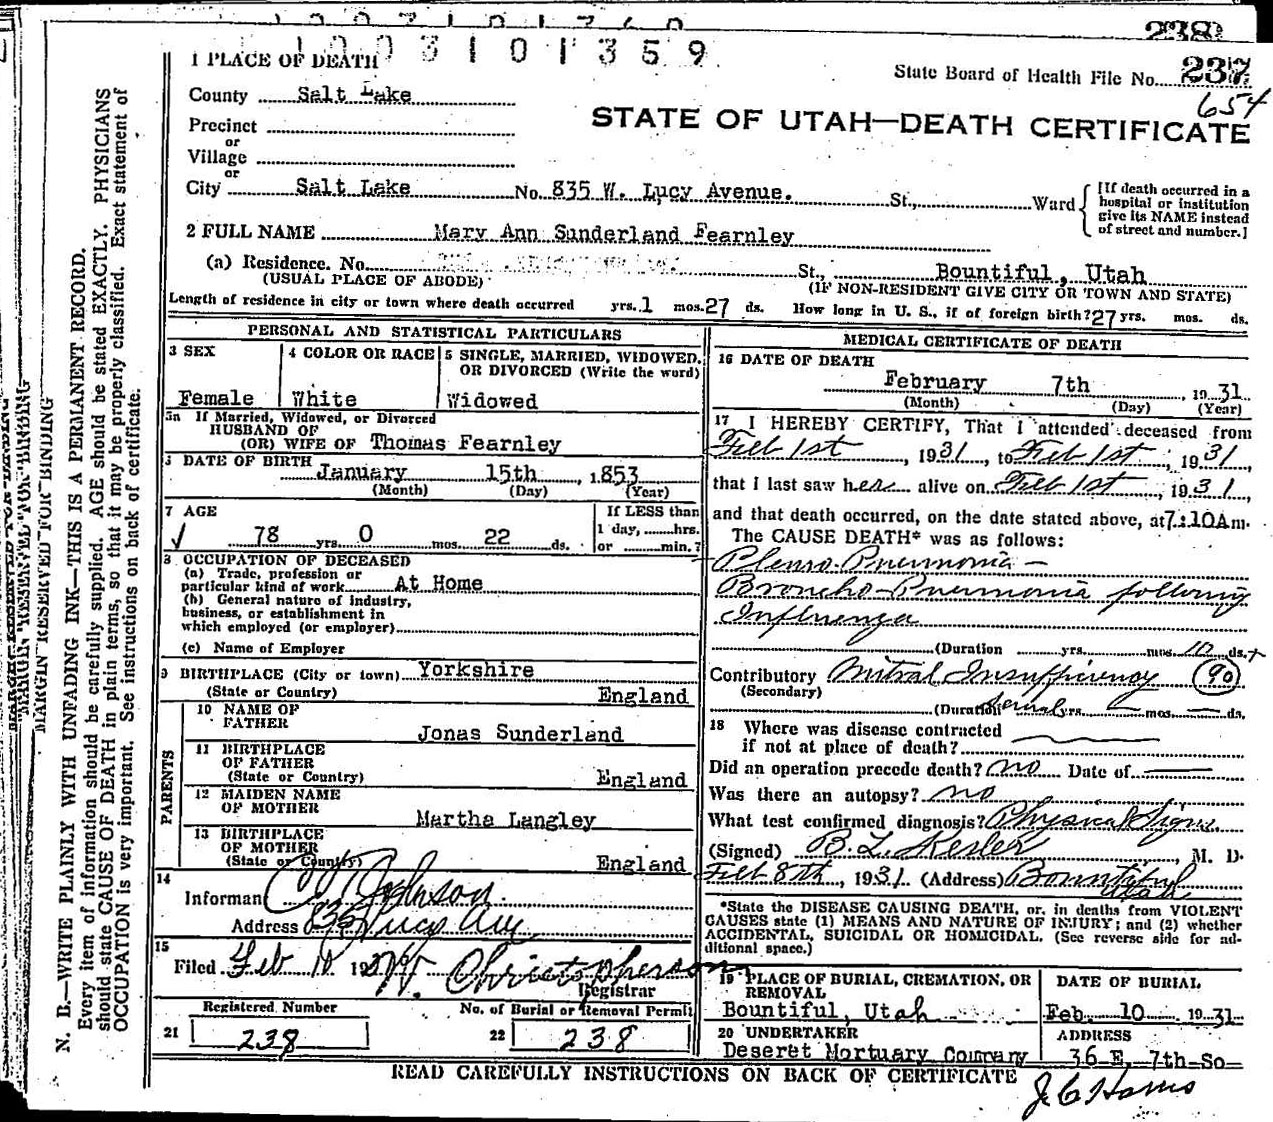 238
1003101359
1 PLACE OF DEATH
State Board of Health File No. 237
654
County Salt Lake
STATE OF UTAH—DEATH CERTIFICATE
Precinct
or
Village
or
City Salt Lake No. 835 W. Lucy Avenue. St., Ward
[If death occurred in a
hospital or institution
give its NAME instead
of street and number.]
2 FULL NAME Mary Ann Sunderland Fearnley
(a) Residence. No. St., Bountiful, Utah
(USUAL PLACE OF ABODE) (IF NON-RESIDENT GIVE CITY OR TOWN AND STATE)
Length of residence in city or town where death occurred yrs. 1 mos. 27 ds. How long in U. S., if of foreign birth? 27 yrs. mos. ds.
PERSONAL AND STATISTICAL PARTICULARS
3 SEX
Female
4 COLOR OR RACE
White
5 SINGLE, MARRIED, WIDOWED,
OR DIVORCED (Write the word)
Widowed
5a If Married, Widowed, or Divorced
HUSBAND OF
(OR) WIFE OF Thomas Fearnley
DATE OF BIRTH
January 15th, 1853
(Month) (Day) (Year)
7 AGE
78 yrs. 0 mos. 22 ds.
If LESS than
1 day, hrs.
or min.?
8 OCCUPATION OF DECEASED
(a) Trade, profession or
particular kind of work At Home
(b) General nature of industry,
business, or establishment in
which employed (or employer)
(c) Name of Employer
9 BIRTHPLACE (City or town) Yorkshire
(State or Country) England
PARENTS
10 NAME OF
FATHER
Jonas Sunderland
11 BIRTHPLACE
OF FATHER
(State or Country) England
12 MAIDEN NAME
OF MOTHER
Martha Langley
13 BIRTHPLACE
OF MOTHER
(State or Country) England
14
Informan Johnson
Address 835 Lucy Ave
15
Filed Feb 10 19 W. Christopherson
Registrar
Registered Number
21 238
No. of Burial or Removal Permit
22 238
MEDICAL CERTIFICATE OF DEATH
16 DATE OF DEATH
February 7th, 1931
(Month) (Day) (Year)
17 I HEREBY CERTIFY, That I attended deceased from
Feb 1st, 1931, to Feb 1st, 1931,
that I last saw her alive on Feb 1st, 1931,
and that death occurred, on the date stated above, at 7:10 A m.
The CAUSE DEATH* was as follows:
Pleuro-Pneumonia —
Broncho-Pneumonia following
Influenza
(Duration yrs. mos. 10 ds. +
Contributory Mitral Insufficiency 90
(Secondary)
(Duration several yrs. — mos. — ds.
18 Where was disease contracted
if not at place of death?
Did an operation precede death? no Date of
Was there an autopsy? no
What test confirmed diagnosis? Physical Signs
(Signed) B. L. Kesler, M. D.
Feb 8th, 1931 (Address) Bountiful
Utah
*State the DISEASE CAUSING DEATH, or, in deaths from VIOLENT
CAUSES state (1) MEANS AND NATURE OF INJURY; and (2) whether
ACCIDENTAL, SUICIDAL OR HOMICIDAL. (See reverse side for ad-
ditional space.)
19 PLACE OF BURIAL, CREMATION, OR
REMOVAL
Bountiful, Utah
DATE OF BURIAL
Feb. 10 1931
20 UNDERTAKER
Deseret Mortuary Company
ADDRESS
36 E. 7th So
READ CAREFULLY INSTRUCTIONS ON BACK OF CERTIFICATE
MARGIN RESERVED FOR BINDING
N. B.—WRITE PLAINLY WITH UNFADING INK—THIS IS A PERMANENT RECORD.
Every item of information should be carefully supplied. AGE should be stated EXACTLY. PHYSICIANS
should state CAUSE OF DEATH in plain terms, so that it may be properly classified. Exact statement of
OCCUPATION is very important. See instructions on back of certificate.